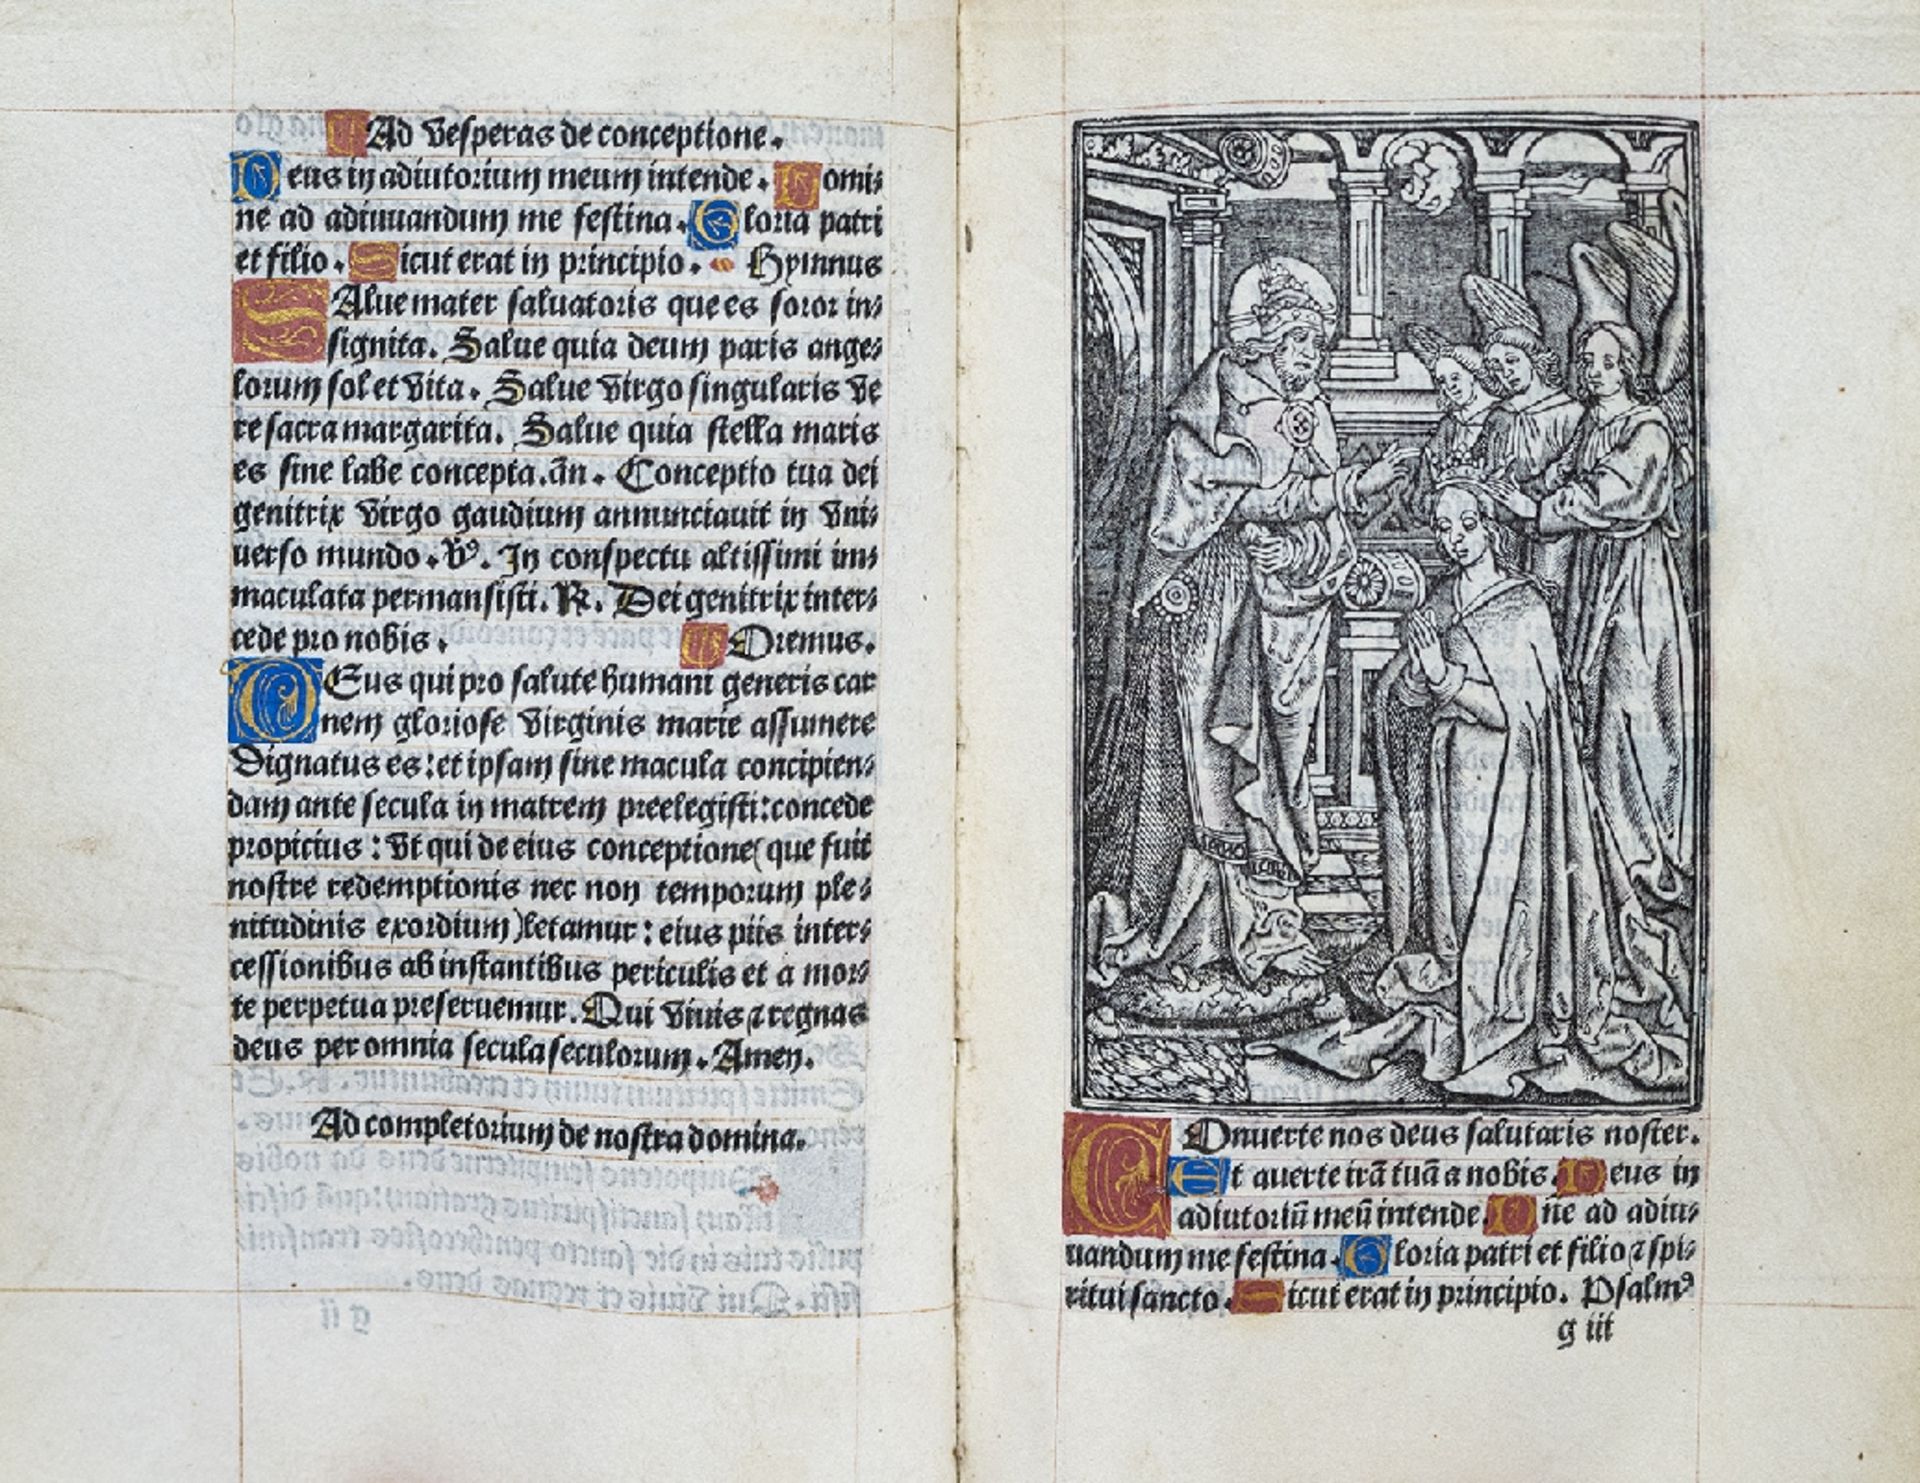 Ad vesperas de conceptione.
Deus in adiutorium meum intende. Domi
ne ad adiuuandum me festina. Gloria patri
et filio. Sicut erat in principio. Hymnus
SAlue mater saluatoris que es soror in
signita. Salue quia deum paris ange
lorum sol et vita. Salue virgo singularis ve
re sacra margarita. Salue quia stella maris
es sine labe concepta. an̄. Conceptio tua dei
genitrix virgo gaudium annunciauit in vni
uerso mundo. V. In conspectu altissimi im
maculata permansisti. R. Dei genitrix inter
cede pro nobis. Oremus.
DEus qui pro salute humani generis car
nem gloriose virginis marie assumere
dignatus es: et ipsam sine macula concipien
dam ante secula in matrem preelegisti: concede
propicius: vt qui de eius conceptione (que fuit
nostre redemptionis nec non temporum ple
nitudinis exordium) letamur: eius piis inter
cessionibus ab instantibus periculis et a mor
te perpetua preseruemur. Qui viuis ⁊ regnas
deus per omnia secula seculorum. Amen.
Ad completorium de nostra domina.
COnuerte nos deus salutaris noster.
Et auerte irã tuã a nobis. Deus in
adiutoriũ meũ intende. Dñe ad adiu
uandum me festina. Gloria patri et filio ⁊ spi
ritui sancto. Sicut erat in principio. Psalmꝰ
g iii